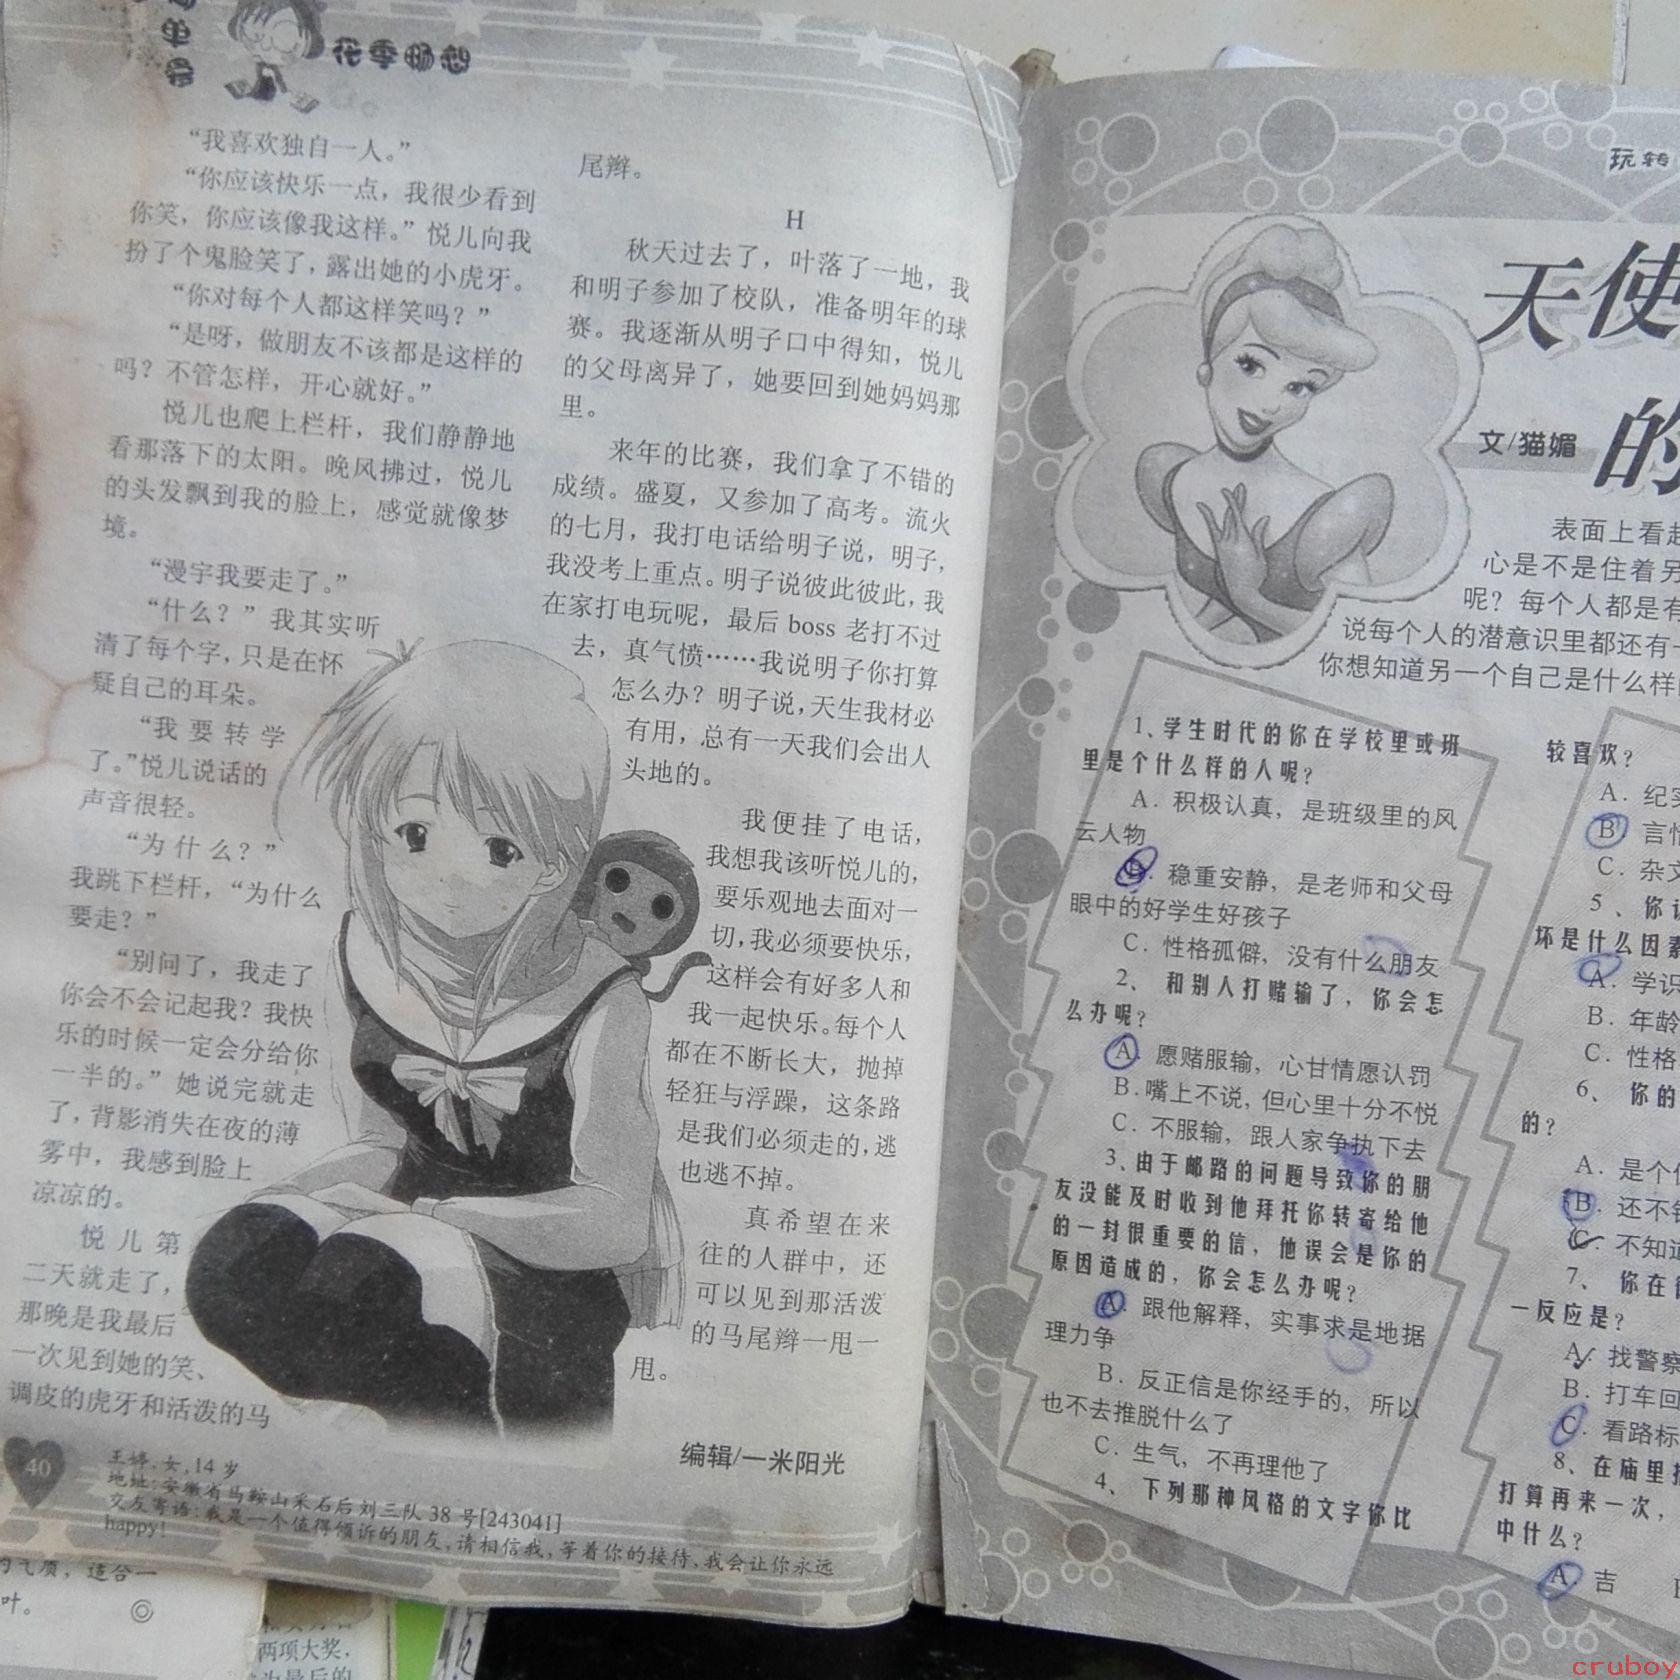 简单
花季畅想
“我喜欢独自一人。”
“你应该快乐一点，我很少看到
你笑，你应该像我这样。”悦儿向我
扮了个鬼脸笑了，露出她的小虎牙。
“你对每个人都这样笑吗？”
“是呀，做朋友不该都是这样的
吗？不管怎样，开心就好。”
悦儿也爬上栏杆，我们静静地
看那落下的太阳。晚风拂过，悦儿
的头发飘到我的脸上，感觉就像梦
境。
“漫宇我要走了。”
“什么？”我其实听
清了每个字，只是在怀
疑自己的耳朵。
“我要转学
了。”悦儿说话的
声音很轻。
“为什么？”
我跳下栏杆，“为什么
要走？”
“别问了，我走了
你会不会记起我？我快
乐的时候一定会分给你
一半的。”她说完就走
了，背影消失在夜的薄
雾中，我感到脸上
凉凉的。
悦儿第
二天就走了，
那晚是我最后
一次见到她的笑、
调皮的虎牙和活泼的马
尾辫。
H
秋天过去了，叶落了一地，我
和明子参加了校队，准备明年的球
赛。我逐渐从明子口中得知，悦儿
的父母离异了，她要回到她妈妈那
里。
来年的比赛，我们拿了不错的
成绩。盛夏，又参加了高考。流火
的七月，我打电话给明子说，明子，
我没考上重点。明子说彼此彼此，我
在家打电玩呢，最后 boss 老打不过
去，真气愤……我说明子你打算
怎么办？明子说，天生我材必
有用，总有一天我们会出人
头地的。
我便挂了电话，
我想我该听悦儿的，
要乐观地去面对一
切，我必须要快乐，
这样会有好多人和
我一起快乐。每个人
都在不断长大，抛掉
轻狂与浮躁，这条路
是我们必须走的，逃
也逃不掉。
真希望在来
往的人群中，还
可以见到那活泼
的马尾辫一甩一
甩。
编辑/一米阳光
40
王婷，女，14 岁
地址：安徽省马鞍山采石后刘三队 38 号[243041]
交友寄语：我是一个值得倾诉的朋友，请相信我，等着你的接待，我会让你永远
happy!
的气质，适合一
叶。
两项大奖，
为最后的
玩转
天使
的
文/猫媚
表面上看起
心是不是住着另
呢？每个人都是有
说每个人的潜意识里都还有
你想知道另一个自己是什么样
1、学生时代的你在学校里或班
里是个什么样的人呢？
A．积极认真，是班级里的风
云人物
B．稳重安静，是老师和父母
眼中的好学生好孩子
C．性格孤僻，没有什么朋友
2、和别人打赌输了，你会怎
么办呢？
A．愿赌服输，心甘情愿认罚
B．嘴上不说，但心里十分不悦
C．不服输，跟人家争执下去
3、由于邮路的问题导致你的朋
友没能及时收到他拜托你转寄给他
的一封很重要的信，他误会是你的
原因造成的，你会怎么办呢？
A．跟他解释，实事求是地据
理力争
B．反正信是你经手的，所以
也不去推脱什么了
C．生气，不再理他了
4、下列那种风格的文字你比
较喜欢？
A．纪实
B．言情
C．杂文
5、你认
坏是什么因素
A．学识
B．年龄
C．性格
6、你的
的？
A．是个
B．还不错
C．不知道
7、你在
一反应是？
A．找警察
B．打车回
C．看路标
8、在庙里
打算再来一次，
中什么？
A．吉
cruboy